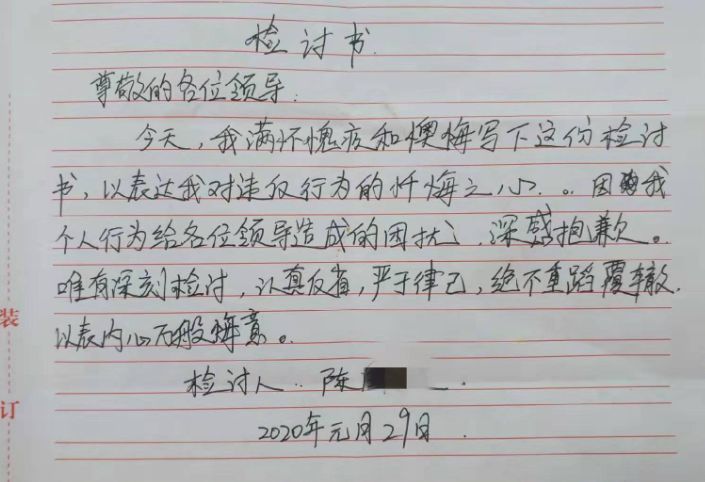 检讨书
尊敬的各位领导:
今天,我满怀愧疚和懊悔写下这份检讨
书,以表达我对违纪行为的忏悔之心。因我
个人行为给各位领导造成的困扰,深感抱歉。
唯有深刻检讨,认真反省,严于律己,绝不重蹈覆辙.
以表内心万般悔意。
检讨人:陈
2020年元月29日.
装
订